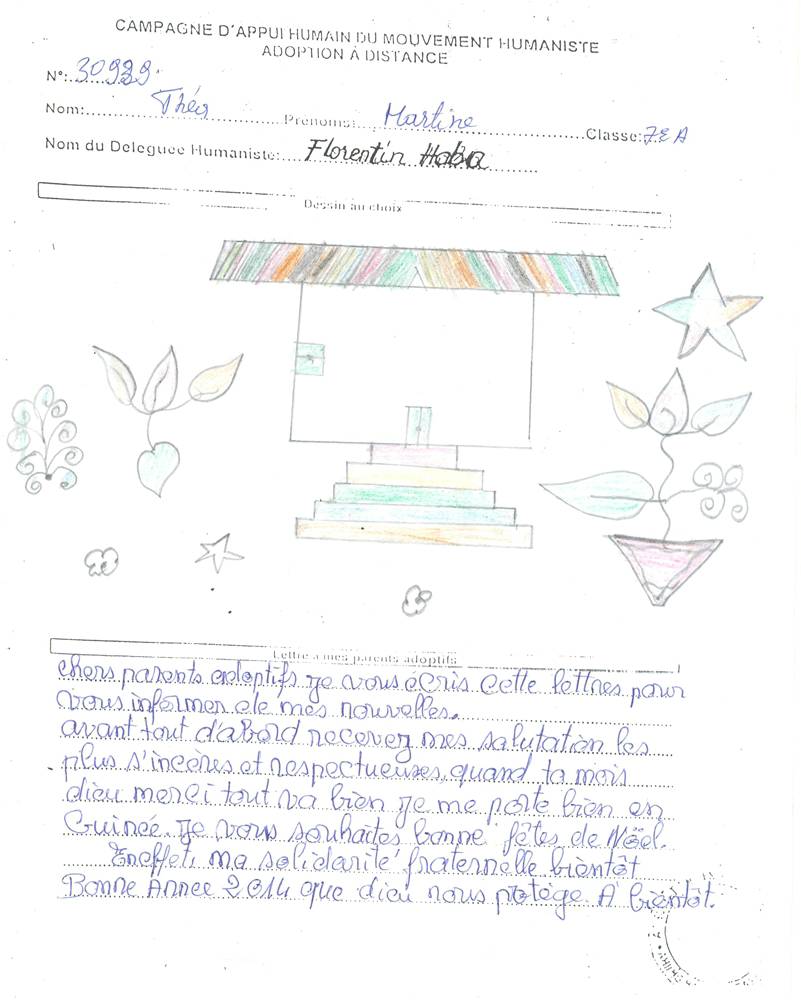 CAMPAGNE D'APPUI HUMAIN DU MOUVEMENT HUMANISTE
ADOPTION À DISTANCE
N°: 30939
Nom: Théa Prénoms: Martine Classe: 7E A
Nom du Deleguee Humaniste: Florentin Haba
Dessin au choix
Lettre à mes parents adoptifs
chers parents adoptifs je vous écris cette lettres pour
vous informer de mes nouvelles.
avant tout d'abord recevez mes salutation les
plus s'incères et respectueuses, quand ta mois
dieu merci tout va bien je me porte bien en
Guinée. je vous souhaites bonne fêtes de Nöel.
Eneffet, ma solidarité fraternelle bientôt
Bonne Annee 2014 que dieu nous protège. A bientôt.